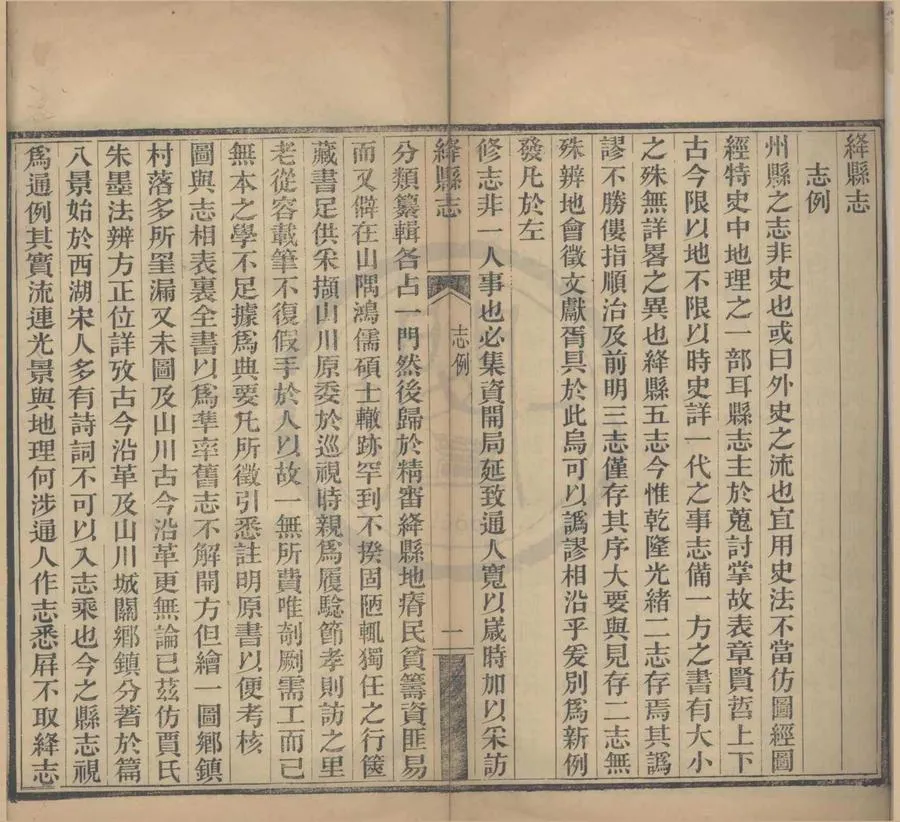 絳縣志
志例
州縣之志非史也或曰外史之流也宜用史法不當仿圖經圖
經特史中地理之一部耳縣志主於蒐討掌故表章賢哲上下
古今限以地不限以時史詳一代之事志備一方之書有大小
之殊無詳畧之異也絳縣五志今惟乾隆光緒二志存焉其譌
謬不勝僂指順治及前明三志僅存其序大要與見存二志無
殊辨地會徵文獻胥具於此烏可以譌謬相沿乎爰別為新例
發凡於左
修志非一人事也必集資開局延致通人寬以歲時加以采訪
絳縣志
志例
一
分類纂輯各占一門然後歸於精審絳縣地瘠民貧籌資匪易
而又僻在山隅鴻儒碩士轍跡罕到不揆固陋輒獨任之行篋
藏書足供采擷山川原委於巡視時親為履騐節孝則訪之里
老從容載筆不復假手於人以故一無所費唯剞劂需工而已
無本之學不足據為典要凡所徵引悉註明原書以便考核
圖與志相表裏全書以為準率舊志不解開方但繪一圖鄉鎮
村落多所罣漏又未圖及山川古今沿革更無論已茲仿賈氏
朱墨法辨方正位詳攷古今沿革及山川城關鄉鎮分著於篇
八景始於西湖宋人多有詩詞不可以入志乘也今之縣志視
為通例其實流連光景與地理何涉通人作志悉屏不取絳志